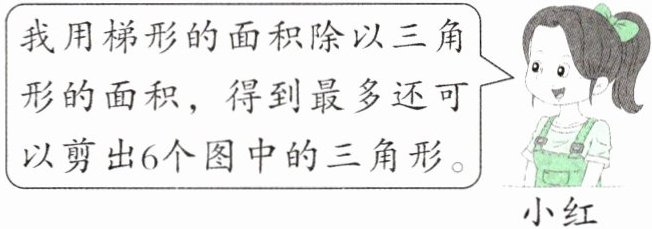 我用梯形的面积除以三角
形的面积，得到最多还可
以剪出6个图中的三角形。
小红